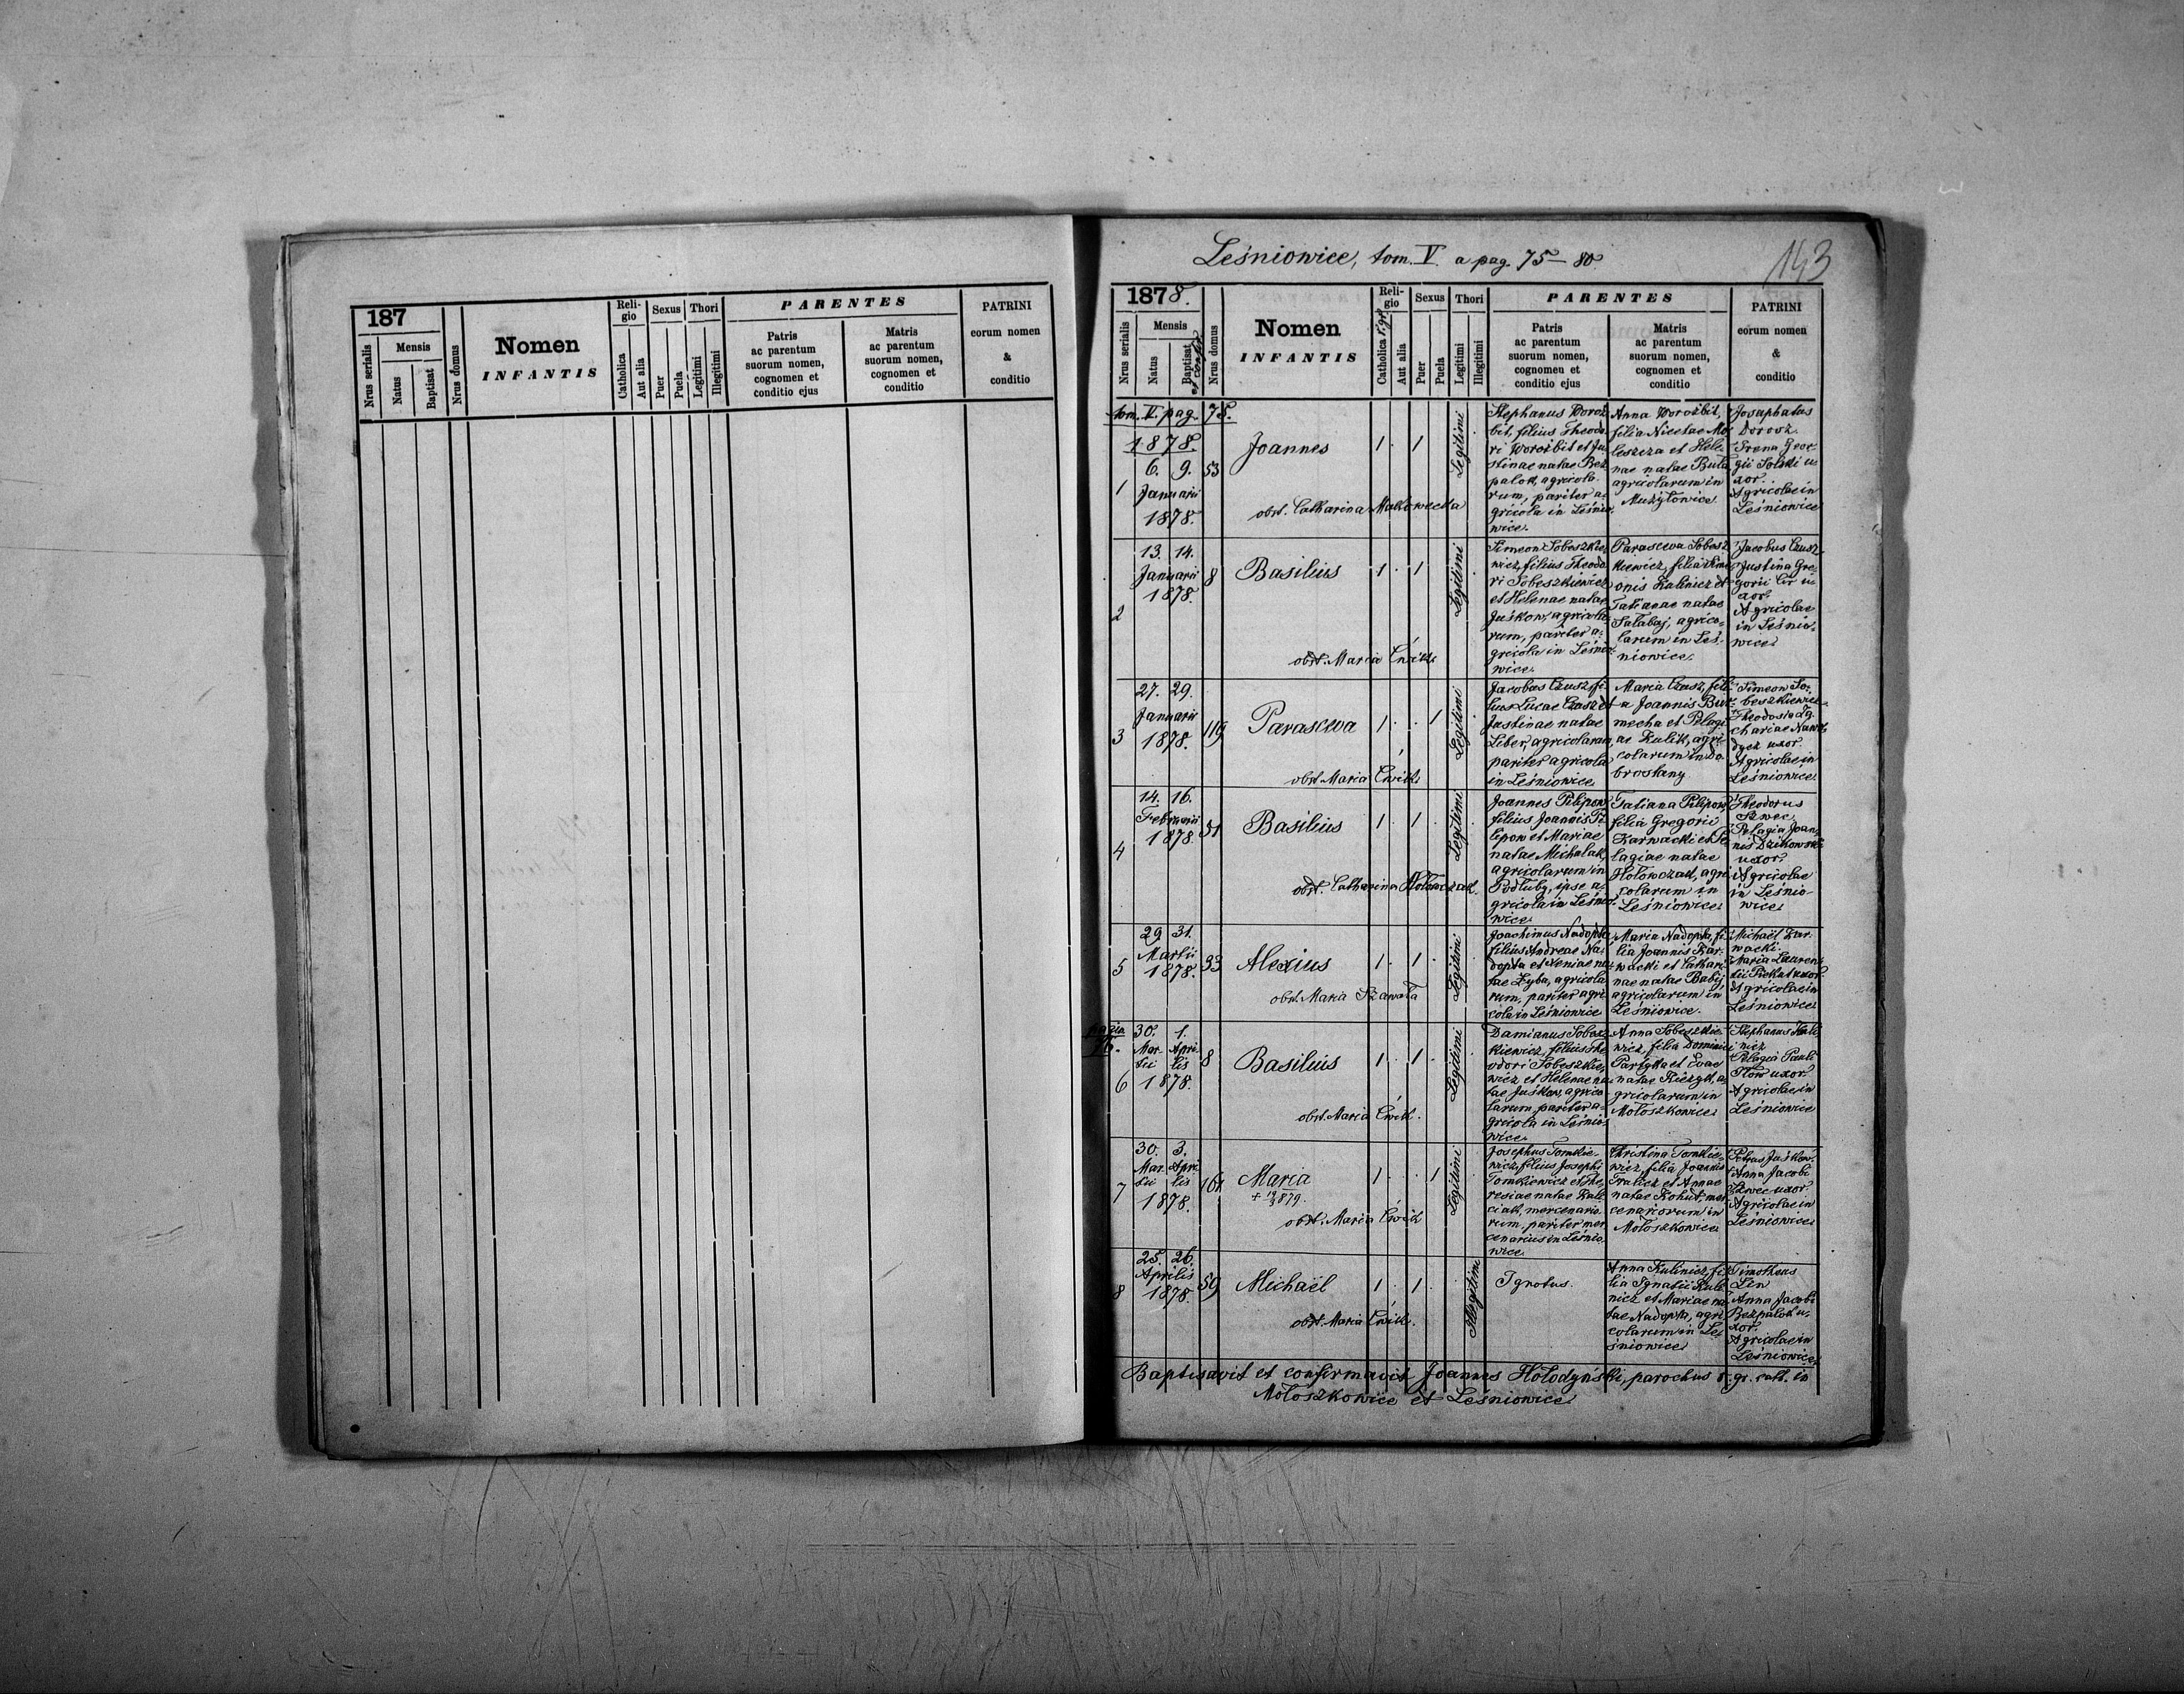 187
Nrus serialis
Mensis
Natus
Baptisat
Nrus domus
Nomen
INFANTIS
Reli-
gio
Catholica
Aut alia
Sexus
Puer
Puela
Thori
Legitimi
Illegitimi
PARENTES
Patris
ac parentum
suorum nomen,
cognomen et
conditio ejus
Matris
ac parentum
suorum nomen,
cognomen et
conditio
PATRINI
eorum nomen
&
conditio
Leśniowice, tom. V. a pag. 75 — 80.
143
1878.
Nrus serialis
Mensis
Natus
Baptisat
et confir.
Nrus domus
Nomen
INFANTIS
Reli-
gio
Catholica r. gr.
Aut alia
Sexus
Puer
Puela
Thori
Legitimi
Illegitimi
PARENTES
Patris
ac parentum
suorum nomen,
cognomen et
conditio ejus
Matris
ac parentum
suorum nomen,
cognomen et
conditio
PATRINI
eorum nomen
&
conditio
tom. V. pag. 75.
1878.
1
6. 9.
Januarii
1878.
53
Joannes
1. 1
Legitimi
obst. Catharina Makowecka
Stephanus Woroż-
bit, filius Theodo-
ri Worożbit et Ju-
stinae natae Bez-
palok, agricola-
rum, pariter a-
gricola in Leśnio-
wice.
Anna Worożbit,
filia Nicetae Mo-
leszcza et Hele-
nae natae Buła
agricolarum in
Mużyłowice.
Josaphatus
Dorosz.
Irena Geor-
gii Solski u-
xor.
Agricolae in
Leśniowice
2
13. 14.
Januarii
1878.
8
Basilius
1. 1
Legitimi
obst. Maria Ćwik
Simeon Sobeszkie-
wicz, filius Theodo-
ri Sobeszkiewicz
et Helenae natae
Juśkow, agricola-
rum, pariter a-
gricola in Leśnio-
wice.
Parascewa Sobesz-
kiewicz, filia Sime-
onis Kulinicz et
Tatianae natae
Salabaj, agrico-
larum in Leś-
niowice.
Jacobus Czusz
Justina Gre-
gorii Cir u-
xor.
Agricolae
in Leśnio-
wice.
3
27. 29.
Januarii
1878.
119
Parascewa
1. 1
Legitimi
obst. Maria Ćwik
Jacobus Czusz, fi-
lius Lucae Czusz et
Justinae natae
Liber, agricolarum,
pariter agricola
in Leśniowice
Maria Czusz, fili-
a Joannis Bur-
mecha et Pelagi-
ae Kulik, agri-
colarum in Do-
brostany
Simeon So-
beszkiewicz
Theodosia Za-
chariae Nawro-
dycz uxor.
Agricolae in
Leśniowice
4
14. 16.
Februarii
1878.
51
Basilius
1. 1
Legitimi
obst. Catharina Hołowczak.
Joannes Pilipow
filius Joannis Pi-
lipow et Mariae
natae Michalak,
agricolarum in
Podłuby, ipse a-
gricola in Leśnio-
wice.
Tatiana Pilipow,
filia Gregorii
Karwacki et Pe-
lagiae natae
Hołowczak, agri-
colarum in
Leśniowice
Theodorus
Szwec
Pelagia Joan-
nis Dzikowski
uxor.
Agricolae
in Leśnio-
wice
5
29. 31.
Martii
1878.
33
Alexius
1. 1.
Legitimi
obst. Maria Szawała
Joachimus Nadopta
filius Andreae Na-
dopta et Xeniae na-
tae Zyba, agricola-
rum, pariter agri-
cola in Leśniowice
Maria Nadopta, fi-
lia Joannis Kar-
wacki et Cathari-
nae natae Babij
agricolarum in
Leśniowice.
Michaël Kar-
wacki.
Maria Lauren-
tii Piekut uxor.
Agricolae in
Leśniowice
pagin
76.
6
30. 1.
Mar- Apri-
tii lis
1878.
8
Basilius
1. 1.
Legitimi
obst. Maria Ćwik.
Damianus Sobesz-
kiewicz, filius The-
odori Sobeszkie-
wicz et Helenae na-
tae Juśkow, agrico-
larum, pariter a-
gricola in Leśnio-
wice
Anna Sobeszkie-
wicz, filia Dominici
Paryta et Evae
natae Kiezyk, a-
gricolarum in
Mołoszkowice
Stephanus Kuli-
nicz
Pelagia Pauli
Iłow uxor.
Agricolae in
Leśniowice
7
30. 3.
Mar- Apri-
tii lis
1878.
161
Maria
1. 1
Legitimi
obst. Maria Ćwik
Josephus Tomkie-
wicz, filius Josephi
Tomkiewicz et The-
resiae natae Kale-
ciak, mercenario-
rum, pariter mer-
cenarius in Leśnio-
wice
Christina Tomkie-
wicz, filia Joannis
Tralicz et Annae
natae Kohut, mer-
cenariorum in
Mołoszkowice
Petrus Juśkow.
Anna Jacobi
Szwec uxor.
Agricolae in
Leśniowice
8
25. 26.
Aprilis
1878.
59
Michaël
1. 1.
Illegitimi
obst. Maria Ćwik.
Ignotus.
Anna Kulinicz, fi-
lia Ignatii Kuli-
nicz et Mariae na-
tae Nadopta, agri-
colarum in Le-
śniowice
Timotheus
Lin
Anna Jacobi
Bezpalok u-
xor.
Agricolae in
Leśniowice
Baptisavit et confirmavit Joannes Hołodyński, parochus r. gr. cath. in
Mołoszkowice et Leśniowice